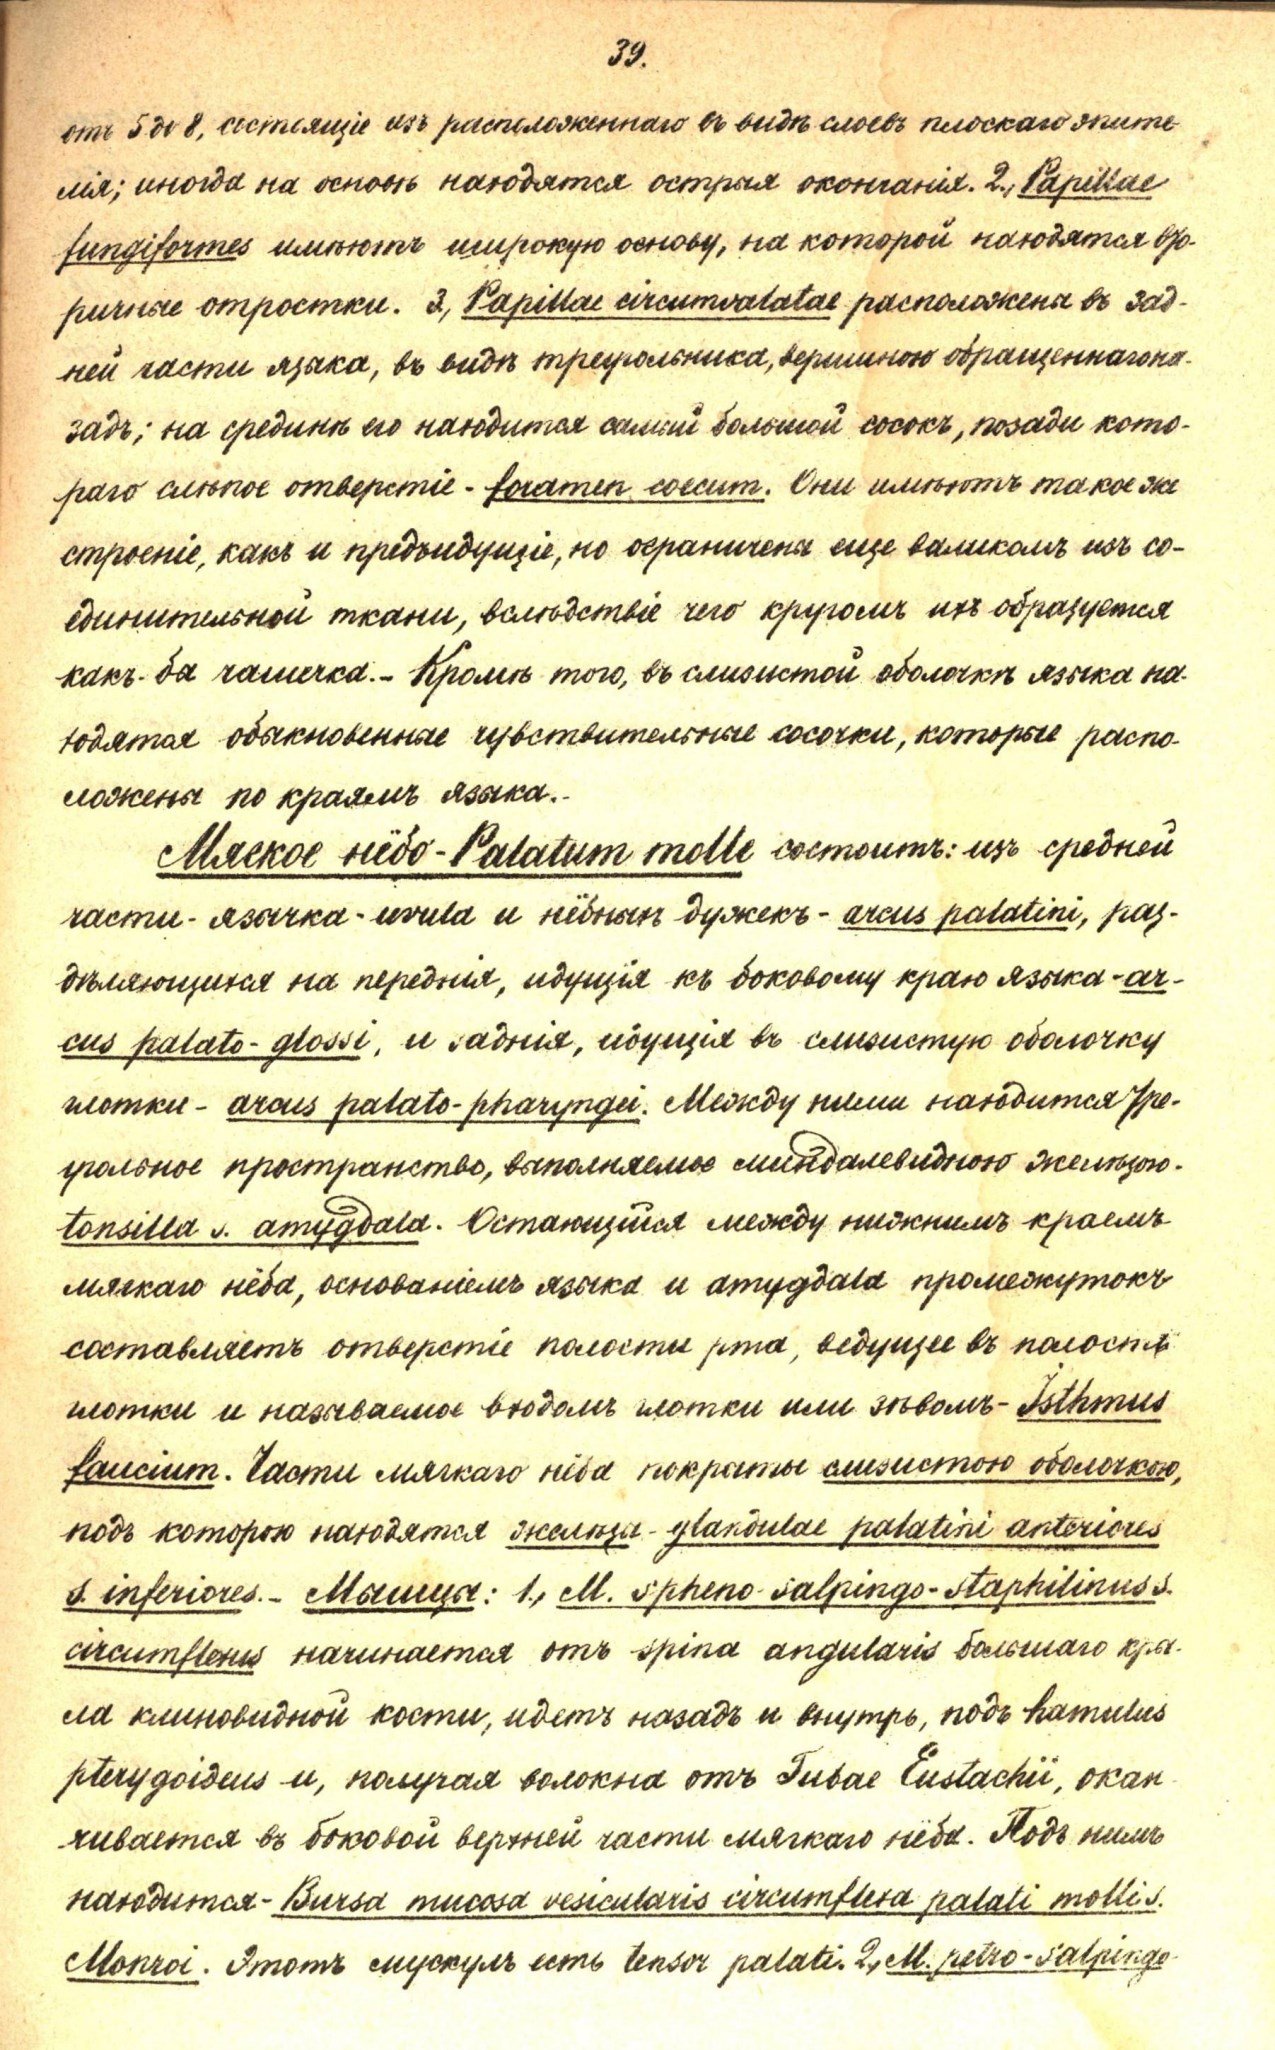 39.
отъ 5 до 8, состоящіе изъ расположеннаго въ видѣ слоевъ плоскаго эпите-
лія; иногда на основѣ находятся острыя окончанія. 2., Papillae
fungiformes имѣютъ широкую основу, на которой находятся вто-
ричные отростки. 3, Papillae circumvalatae расположены въ зад-
ней части языка, въ видѣ треугольника, вершиною обращеннаго на-
задъ; на срединѣ его находится самый большой сосокъ, позади кото-
раго слѣпое отверстіе - foramen coecum. Они имѣютъ такое же
строеніе, какъ и предъидущіе, но ограничены еще валикомъ изъ со-
единительной ткани, вслѣдствіе чего кругомъ ихъ образуется
какъ-бы чашечка.- Кромѣ того, въ слизистой оболочкѣ языка на-
ходятся обыкновенные чувствительные сосочки, которые распо-
ложены по краямъ языка.-
Мягкое нёбо - Palatum molle состоитъ: изъ средней
части - язычка - uvula и нёбныхъ дужекъ - arcus palatini, раз-
дѣляющихся на переднія, идущія къ боковому краю языка - ar-
cus palato-glossi, и заднія, идущія въ слизистую оболочку
глотки - arcus palato-pharyngei. Между ними находится тре-
угольное пространство, выполняемое миндалевидною железою-
tonsilla s. amygdala. Остающійся между нижнимъ краемъ
мягкаго нёба, основаніемъ языка и amygdala промежутокъ
составляетъ отверстіе полости рта, ведущее въ полость
глотки и называемое входомъ глотки или зѣвомъ - Isthmus
faucium. Части мягкаго нёба покрыты слизистою оболочкою,
подъ которою находятся железы - glandulae palatini anteriores
s. inferiores.- Мышцы: 1., M. spheno-salpingo-staphilinus s.
circumflexus начинается отъ spina angularis большаго кры-
ла клиновидной кости, идетъ назадъ и внутрь, подъ hamulus
pterygoideus и, получая волокна отъ Tubae Eustachii, окан-
чивается въ боковой верхней части мягкаго нёба. Подъ нимъ
находится - Bursa mucosa vesicularis circumflexa palati mollis.
Monroi. Этотъ мускулъ есть tensor palati. 2., M. petro-salpingo-